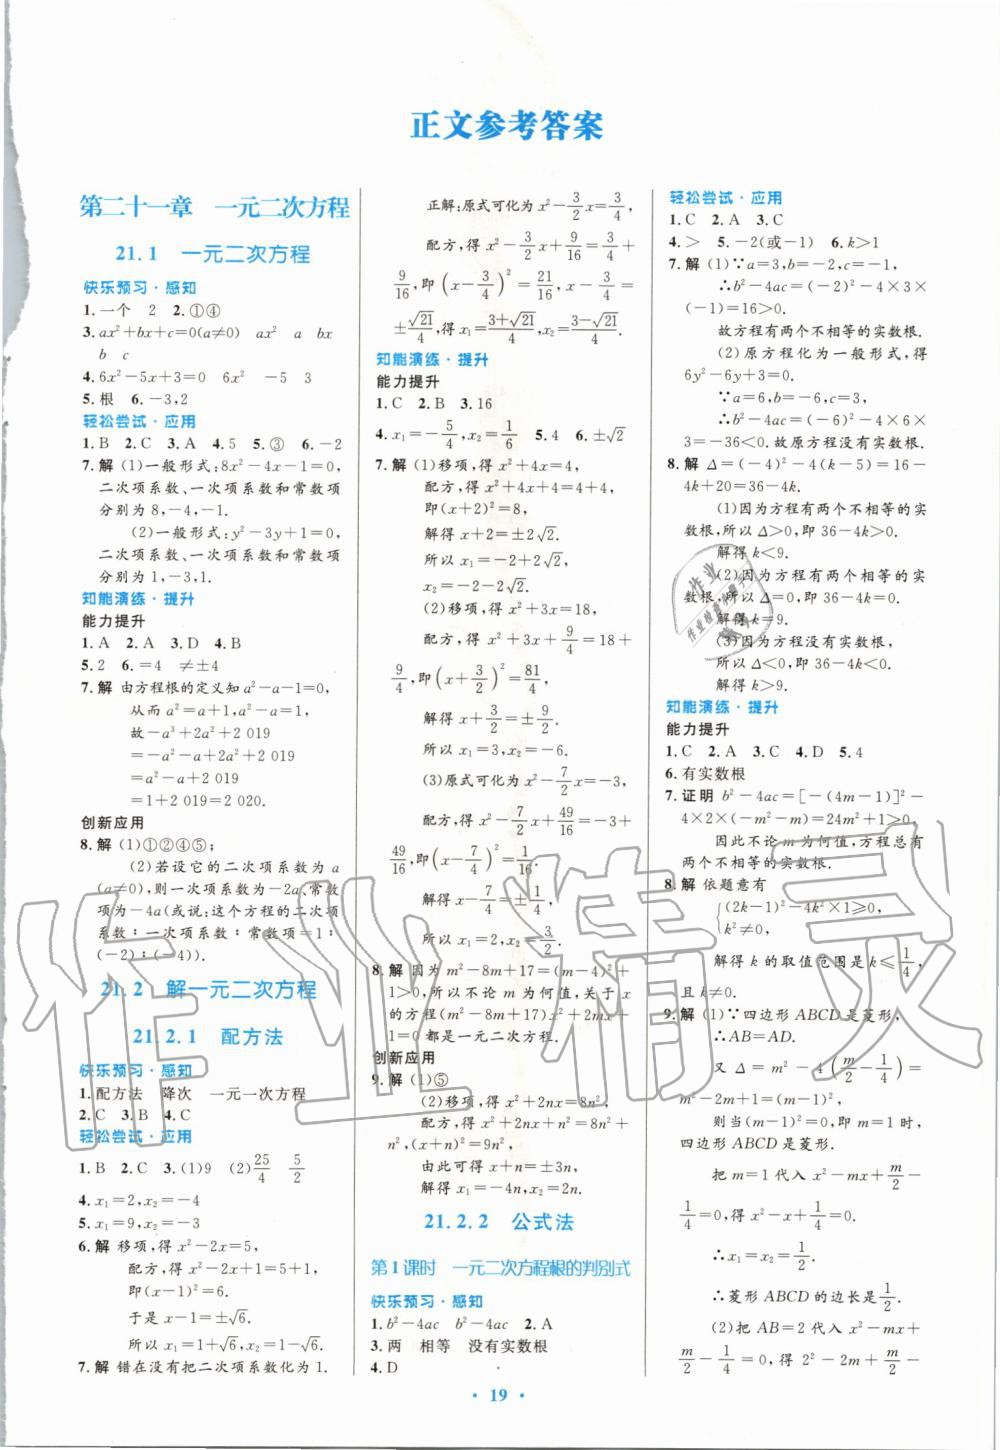 正文参考答案
第二十一章 一元二次方程
21.1 一元二次方程
快乐预习·感知
1.一个 2 2.①④
3.ax²+bx+c=0(a≠0) ax² a bx
b c
4.6x²-5x+3=0 6x² -5 3
5.根 6.-3,2
轻松尝试·应用
1.B 2.C 3.A 4.5 5.③ 6.-2
7.解 (1)一般形式:8x²-4x-1=0,
二次项系数、一次项系数和常数项
分别为8,-4,-1.
(2)一般形式:y²-3y+1=0,
二次项系数、一次项系数和常数项
分别为1,-3,1.
知能演练·提升
能力提升
1.A 2.D 3.D 4.B
5.2 6.=4 ≠±4
7.解 由方程根的定义知a²-a-1=0,
从而a²=a+1,a²-a=1,
故-a³+2a²+2 019
=-a²-a+2a²+2 019
=a²-a+2 019
=1+2 019=2 020.
创新应用
8.解 (1)①②④⑤;
(2)若设它的二次项系数为a
(a≠0),则一次项系数为-2a、常数
项为-4a(或说:这个方程的二次项
系数∶一次项系数∶常数项=1∶
(-2)∶(-4)).
21.2 解一元二次方程
21.2.1 配方法
快乐预习·感知
1.配方法 降次 一元一次方程
2.C 3.B 4.C
轻松尝试·应用
1.B 2.C 3.(1)9 (2)25/4 5/2
4.x₁=2,x₂=-4
5.x₁=9,x₂=-3
6.解 移项,得x²-2x=5,
配方,得x²-2x+1=5+1,
即(x-1)²=6.
于是x-1=±√6.
所以x₁=1+√6,x₂=1-√6.
7.解 错在没有把二次项系数化为1.
正解:原式可化为x²-3/2x=3/4,
配方,得x²-3/2x+9/16=3/4+
9/16,即(x-3/4)²=21/16,x-3/4=
±√21/4,得x₁=3+√21/4,x₂=3-√21/4.
知能演练·提升
能力提升
1.C 2.B 3.16
4.x₁=-5/4,x₂=1/6 5.4 6.±√2
7.解 (1)移项,得x²+4x=4,
配方,得x²+4x+4=4+4,
即(x+2)²=8,
解得x+2=±2√2.
所以x₁=-2+2√2,
x₂=-2-2√2.
(2)移项,得x²+3x=18,
配方,得x²+3x+9/4=18+
9/4,即(x+3/2)²=81/4,
解得x+3/2=±9/2.
所以x₁=3,x₂=-6.
(3)原式可化为x²-7/2x=-3,
配方,得x²-7/2x+49/16=-3+
49/16,即(x-7/4)²=1/16.
解得x-7/4=±1/4,
所以x₁=2,x₂=3/2.
8.解 因为m²-8m+17=(m-4)²+
1>0,所以不论m为何值,关于x
的方程(m²-8m+17)x²+2mx+
1=0都是一元二次方程.
创新应用
9.解 (1)⑤
(2)移项,得x²+2nx=8n²,
配方,得x²+2nx+n²=8n²+
n²,(x+n)²=9n²,
由此可得x+n=±3n,
解得x₁=-4n,x₂=2n.
21.2.2 公式法
第1课时 一元二次方程根的判别式
快乐预习·感知
1.b²-4ac b²-4ac 2.A
3.两 相等 没有实数根
4.D
轻松尝试·应用
1.C 2.A 3.C
4.> 5.-2(或-1) 6.k>1
7.解 (1)∵a=3,b=-2,c=-1,
∴b²-4ac=(-2)²-4×3×
(-1)=16>0.
故方程有两个不相等的实数根.
(2)原方程化为一般形式,得
6y²-6y+3=0.
∵a=6,b=-6,c=3,
∴b²-4ac=(-6)²-4×6×
3=-36<0.故原方程没有实数根.
8.解 Δ=(-4)²-4(k-5)=16-
4k+20=36-4k.
(1)因为方程有两个不相等的实
数根,所以Δ>0,即36-4k>0.
解得k<9.
(2)因为方程有两个相等的实
数根,所以Δ=0,即36-4k=0.
解得k=9.
(3)因为方程没有实数根,
所以Δ<0,即36-4k<0.
解得k>9.
知能演练·提升
能力提升
1.C 2.A 3.C 4.D 5.4
6.有实数根
7.证明 b²-4ac=[-(4m-1)]²-
4×2×(-m²-m)=24m²+1>0,
因此不论m为何值,方程总有
两个不相等的实数根.
8.解 依题意有
{(2k-1)²-4k²×1≥0,
k²≠0,
解得k的取值范围是k≤1/4,
且k≠0.
9.解 (1)∵四边形ABCD是菱形,
∴AB=AD.
又Δ=m²-4(m/2-1/4)=
m²-2m+1=(m-1)²,
则当(m-1)²=0,即m=1时,
四边形ABCD是菱形.
把m=1代入x²-mx+m/2-
1/4=0,得x²-x+1/4=0.
∴x₁=x₂=1/2.
∴菱形ABCD的边长是1/2.
(2)把AB=2代入x²-mx+
m/2-1/4=0,得2²-2m+m/2-
·19·
作业精灵